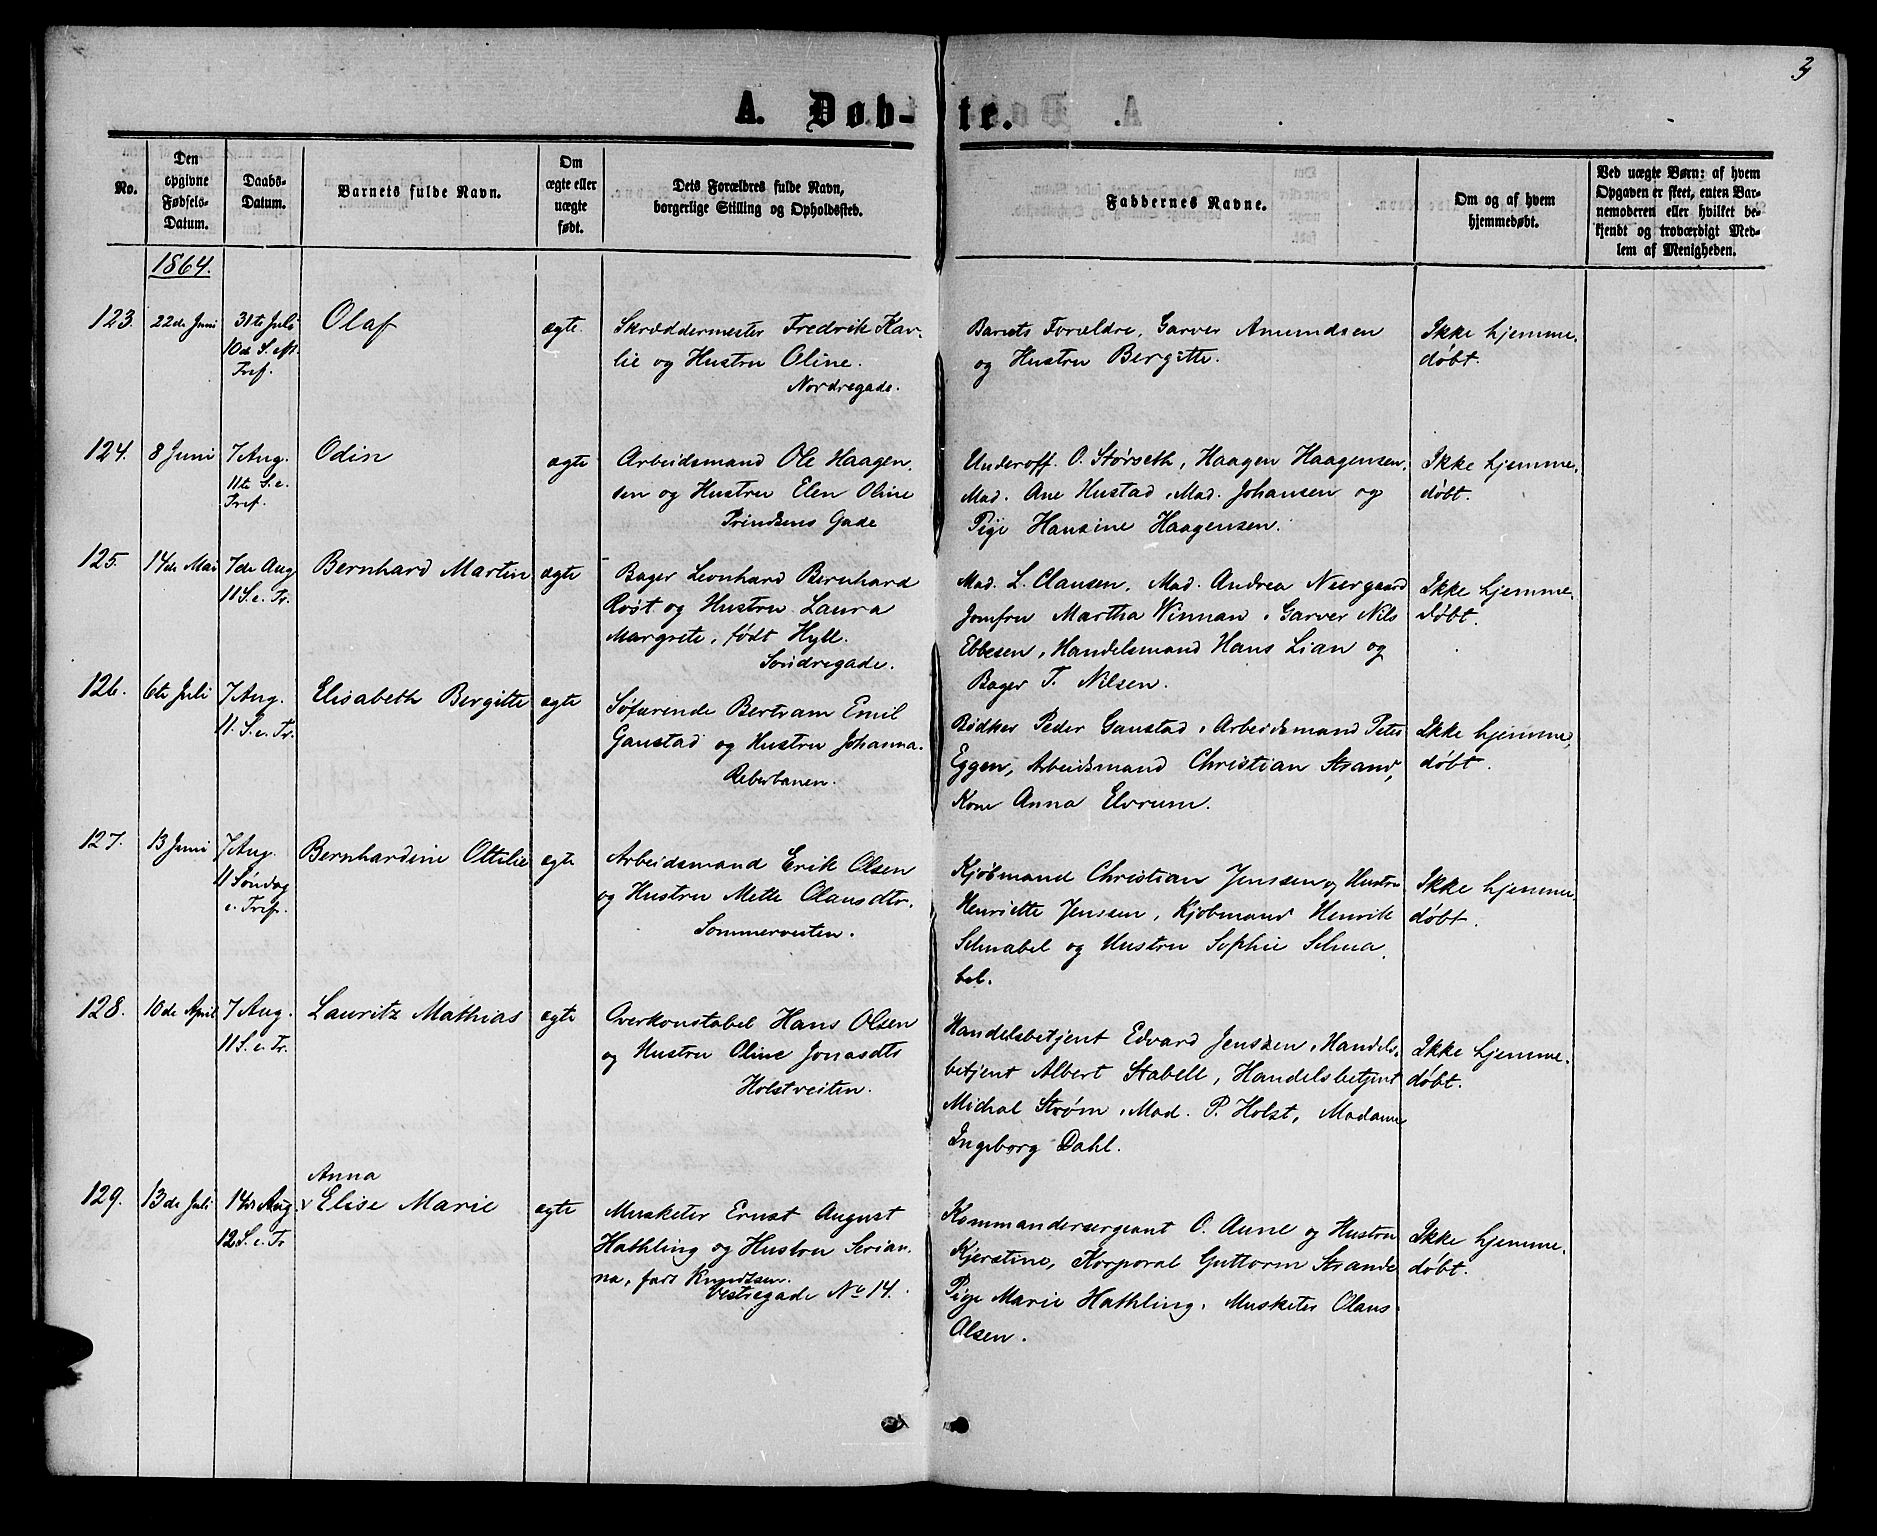 3
A. Døb-te.
No.
Den
opgivne
Fødsels-
Datum.
Daabs-
Datum.
Barnets fulde Navn.
Om
ægte eller
uægte
født.
Dets Forældres fulde Navn,
borgerlige Stilling og Opholdssted.
Faddernes Navne.
Om og af hvem
hjemmedøbt.
Ved uægte Børn: af hvem
Opgaven er skeet, enten Bar-
nemoderen eller hvilket be-
kjendt og troværdigt Med-
lem af Menigheden.
1864.
123.
22de Juni
31te Juli
10de S. eft.
Tref.
Olaf
ægte.
Skræddermester Fredrik Kav-
lie og Hustru Oline.
Nordregade.
Barnets Forældre, Garver Amundsen
og Hustru Bergitte.
Ikke hjemme.
døbt.
124.
8 Juni
7 Aug.
11te S. e.
Tref.
Odin
ægte
Arbeidsmand Ole Haagen.
sen og Hustru Elen Oline
Prindsens Gade
Underoff. O. Størseth, Haagen Haagensen,
Mad. Ane Hustad, Mad. Johansen og
Pige Hansine Haagensen.
Ikke hjemme.
døbt.
125.
14de Mai
7de Aug
11 S. e. Tr.
Bernhard Martin
ægte
Bager Leonhard Bernhard
Røst og Hustru Laura
Margrete, født Hyll.
Søndregade.
Mad. L. Clausen, Mad. Andrea Neergaard
Jomfru Martha Winnan, Garver Nils
Ebbesen, Handelsmand Hans Lian og
Bager T. Nilsen.
Ikke hjemme.
døbt.
126.
6te Juli
7 Aug.
11. S. e. Tr.
Elisabeth Bergitte
ægte
Søfarende Bertram Emil
Ganstad og Hustru Johanna.
Reberbanen.
Bødker Peder Ganstad, Arbeidsmand Peter
Eggen, Arbeidsmand Christian Strand,
Kone Anna Elvrum.
Ikke hjemme,
døbt.
127.
13 Juni
7 Aug.
11 Søndag
e. Tref.
Bernhardine Ottilie
ægte
Arbeidsmand Erik Olsen
og Hustru Mette Olausdtr.
Sommerveiten.
Kjøbmand Christian Jenssen og Hustru
Henriette Jenssen, Kjøbmand Henrik
Schnabel og Hustru Sophie Schna.
bel.
Ikke hjemme
døbt.
128.
10de April
7 Aug.
11 S. e. Tr.
Lauritz Mathias
ægte
Overkonstabel Hans Olsen
og Hustru Oline Jonasdtr
Holstveiten.
Handelsbetjent Edvard Jenssen, Handels.
betjent Albert Stabell, Handelsbetjent
Michal Strøm, Mad. P. Holst, Madame
Ingeborg Dahl.
Ikke hjemme.
døbt.
129.
13de Juli
14de Aug.
12 S. e. Tr
Anna
v Elise Marie
ægte
Musketer Ernst August
Hathling og Hustru Serian.
na, født Knudtsen.
Vestregade No 14.
Kommandersergeant O. Aune og Hustru
Kjerstine, Korporal Guttorm Strande
Pige Marie Hathling, Musketer Olaus
Olsen.
Ikke hjemme.
døbt.